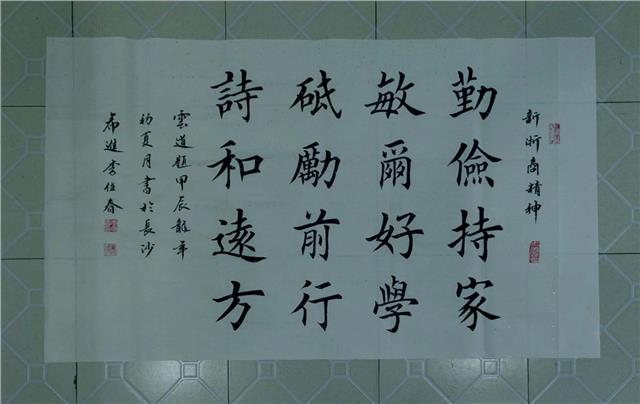 新浙商精神
勤儉持家
敏爾好學
砥勵前行
詩和遠方
雲道題甲辰龍年
初夏月書於長沙
希進李任春